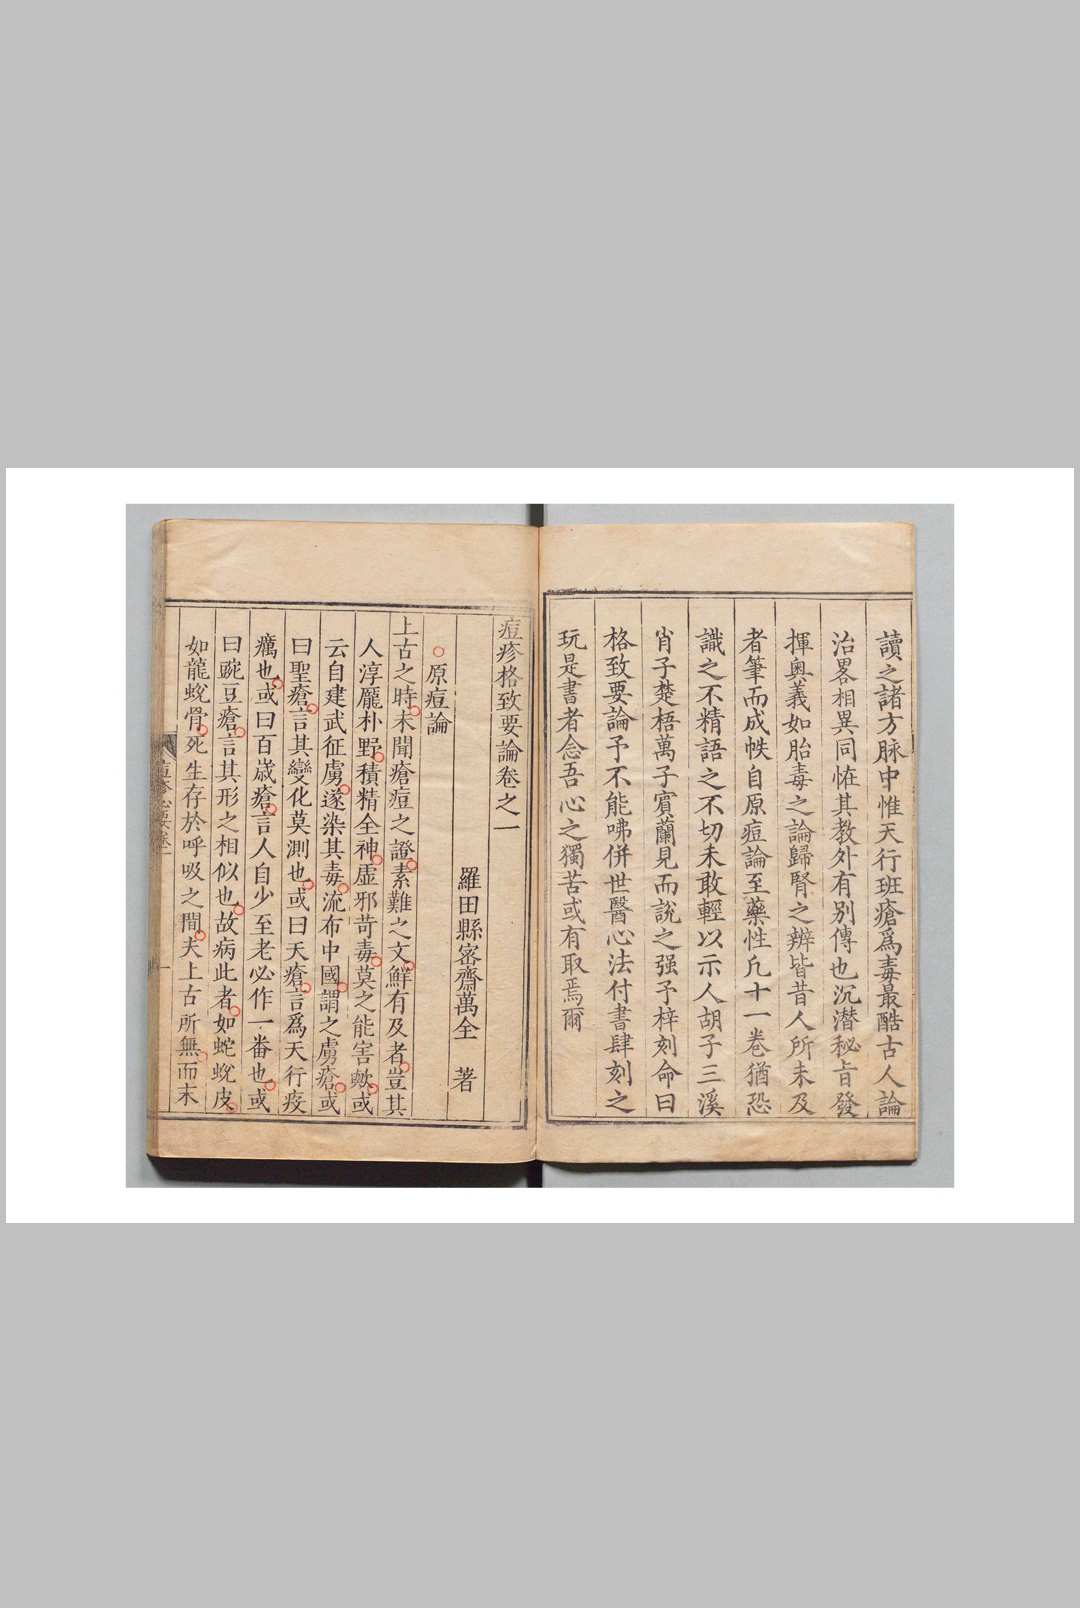 讀之諸方脉中惟天行班瘡爲毒最酷古人論
治畧相異同恠其教外有别傳也沉潛秘旨發
揮奥義如胎毒之論歸腎之辨皆昔人所未及
者筆而成帙自原痘論至藥性凢十一卷猶恐
識之不精語之不切未敢輕以示人胡子三溪
肖子楚梧萬子賓蘭見而説之强予梓刻命曰
格致要論予不能咈併世醫心法付書肆刻之
玩是書者念吾心之獨苦或有取焉爾
痘疹格致要論卷之一
羅田縣密齋萬全 著
○原痘論
上古之時未聞瘡痘之證素難之文鮮有及者豈其
人淳龐朴野積精全神虚邪苛毒莫之能害歟或
云自建武征虜遂染其毒流布中國謂之虜瘡或
曰聖瘡言其變化莫測也或曰天瘡言爲天行疫
癘也或曰百嵗瘡言人自少至老必作一畨也或
曰豌豆瘡言其形之相似也故病此者如蛇蛻皮
如龍蛻骨死生存於呼吸之間夫上古所無而末